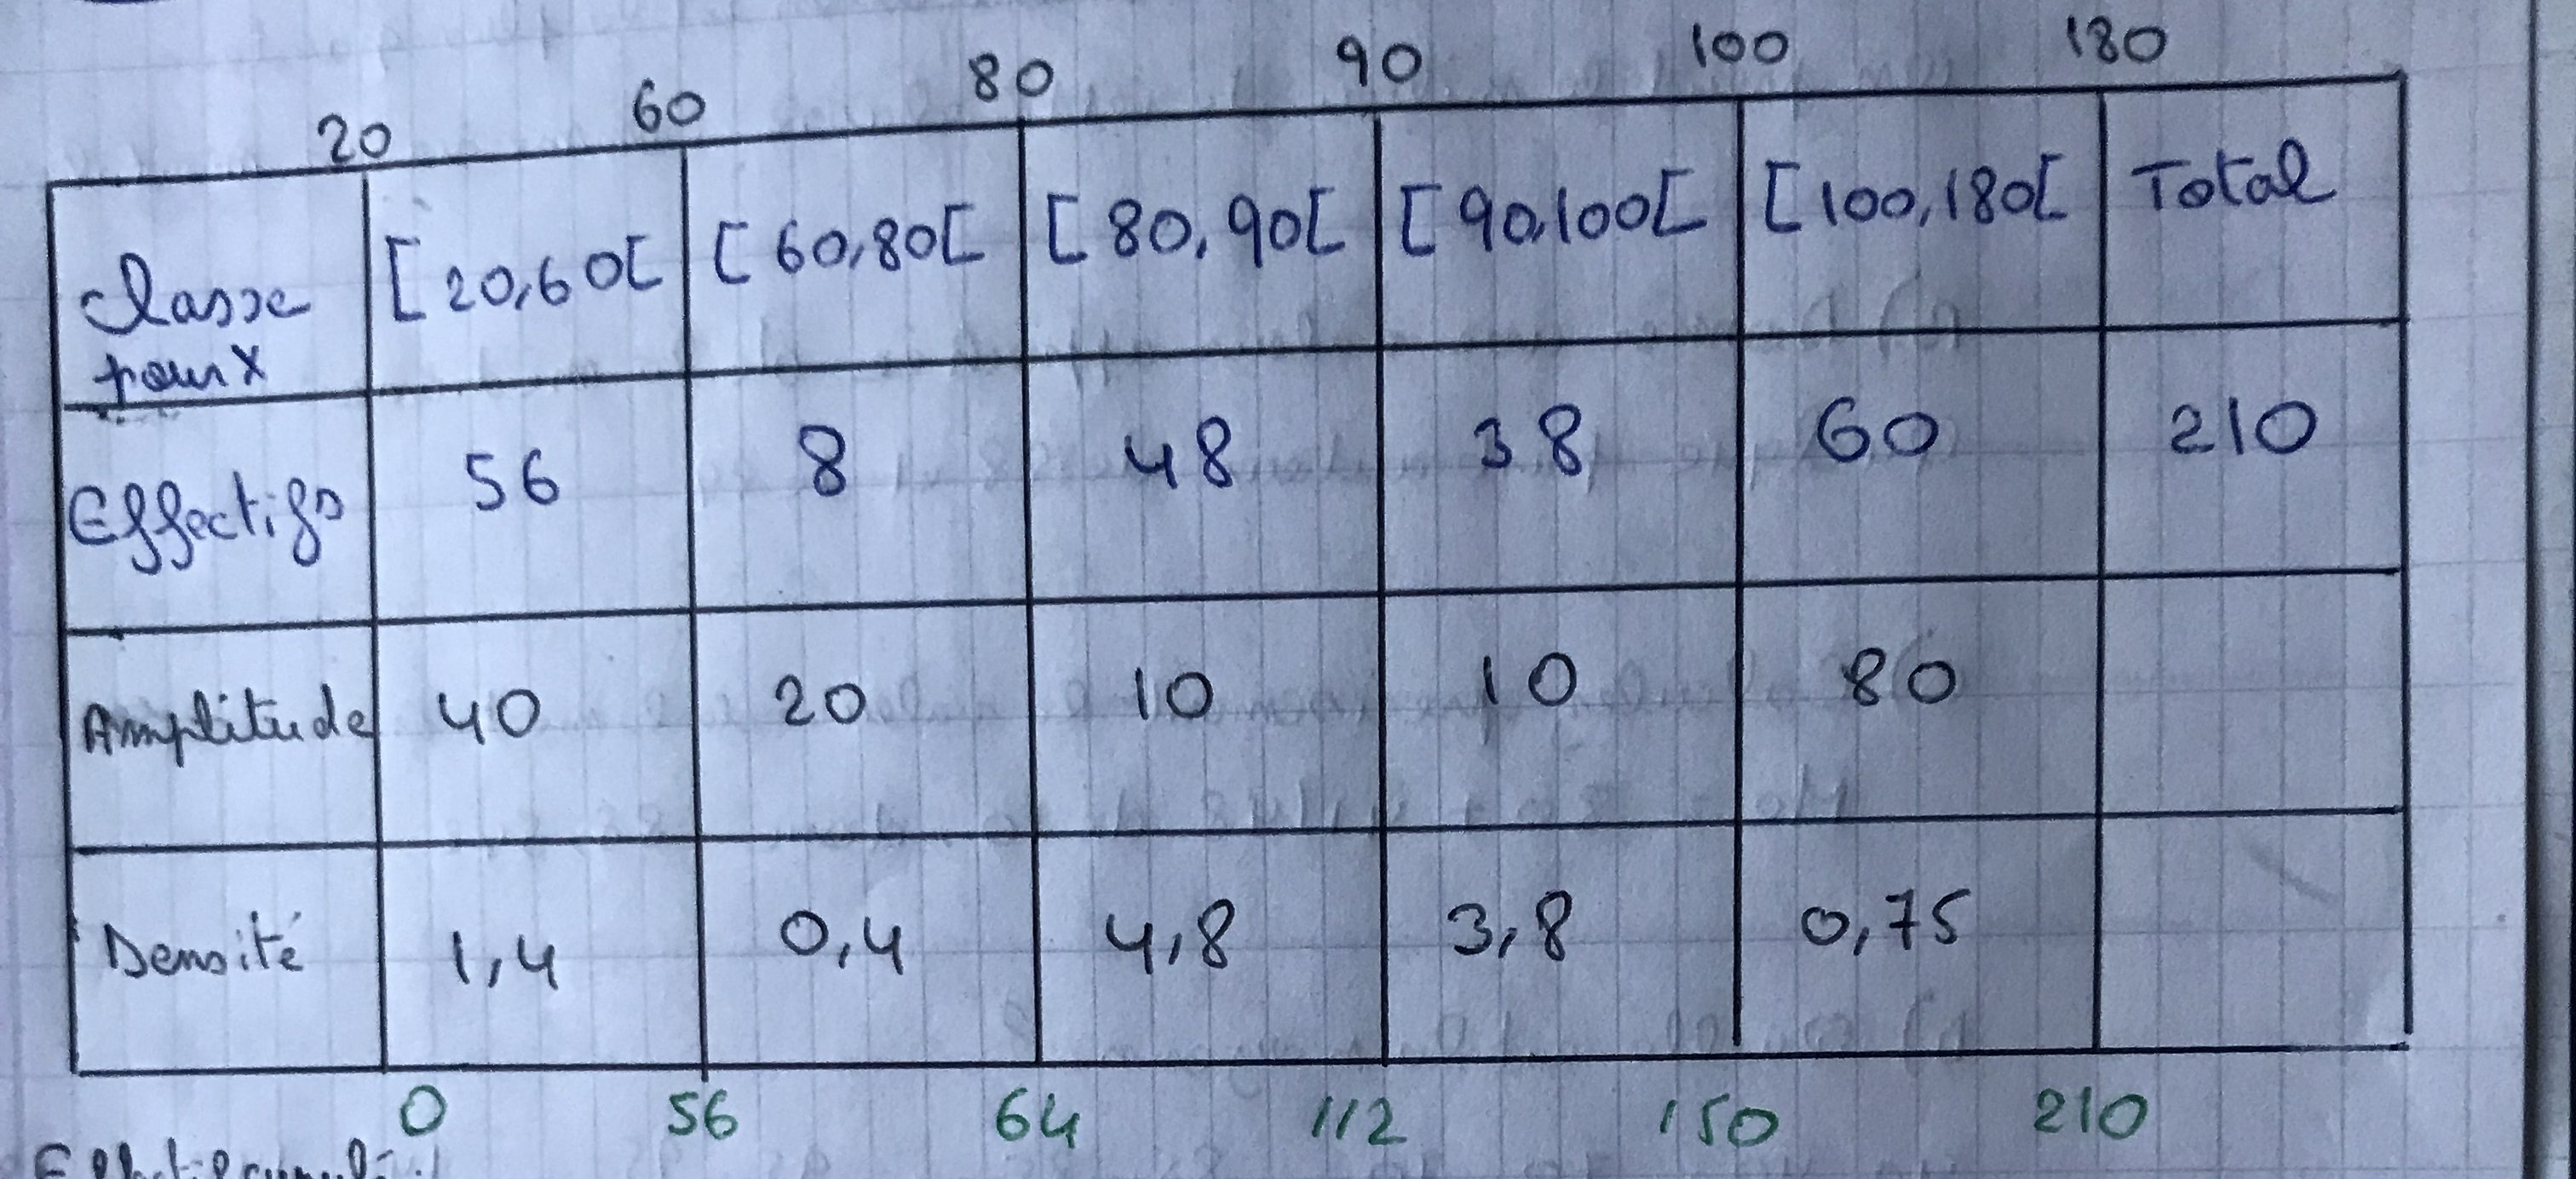 20 60 80 90 100 180
Classe pour X [20,60[ [60,80[ [80,90[ [90,100[ [100,180[ Total
Effectifs 56 8 48 38 60 210
Amplitude 40 20 10 10 80
Densité 1,4 0,4 4,8 3,8 0,75
0 56 64 112 150 210